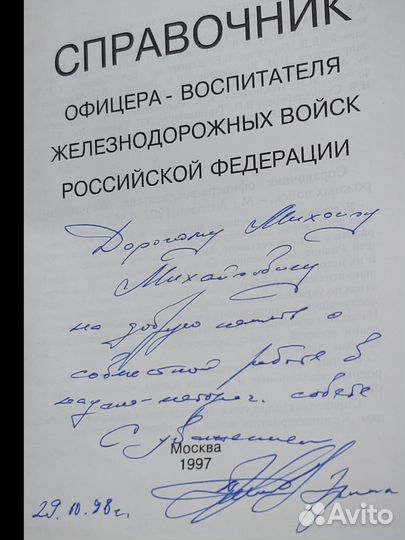 СПРАВОЧНИК
ОФИЦЕРА - ВОСПИТАТЕЛЯ
ЖЕЛЕЗНОДОРОЖНЫХ ВОЙСК
РОССИЙСКОЙ ФЕДЕРАЦИИ
Дорогому Михаилу
Михайловичу
на добрую память о
совместной работе в
научно-методич. совете
С уважением
Москва
1997
29.10.98 г.
Avito